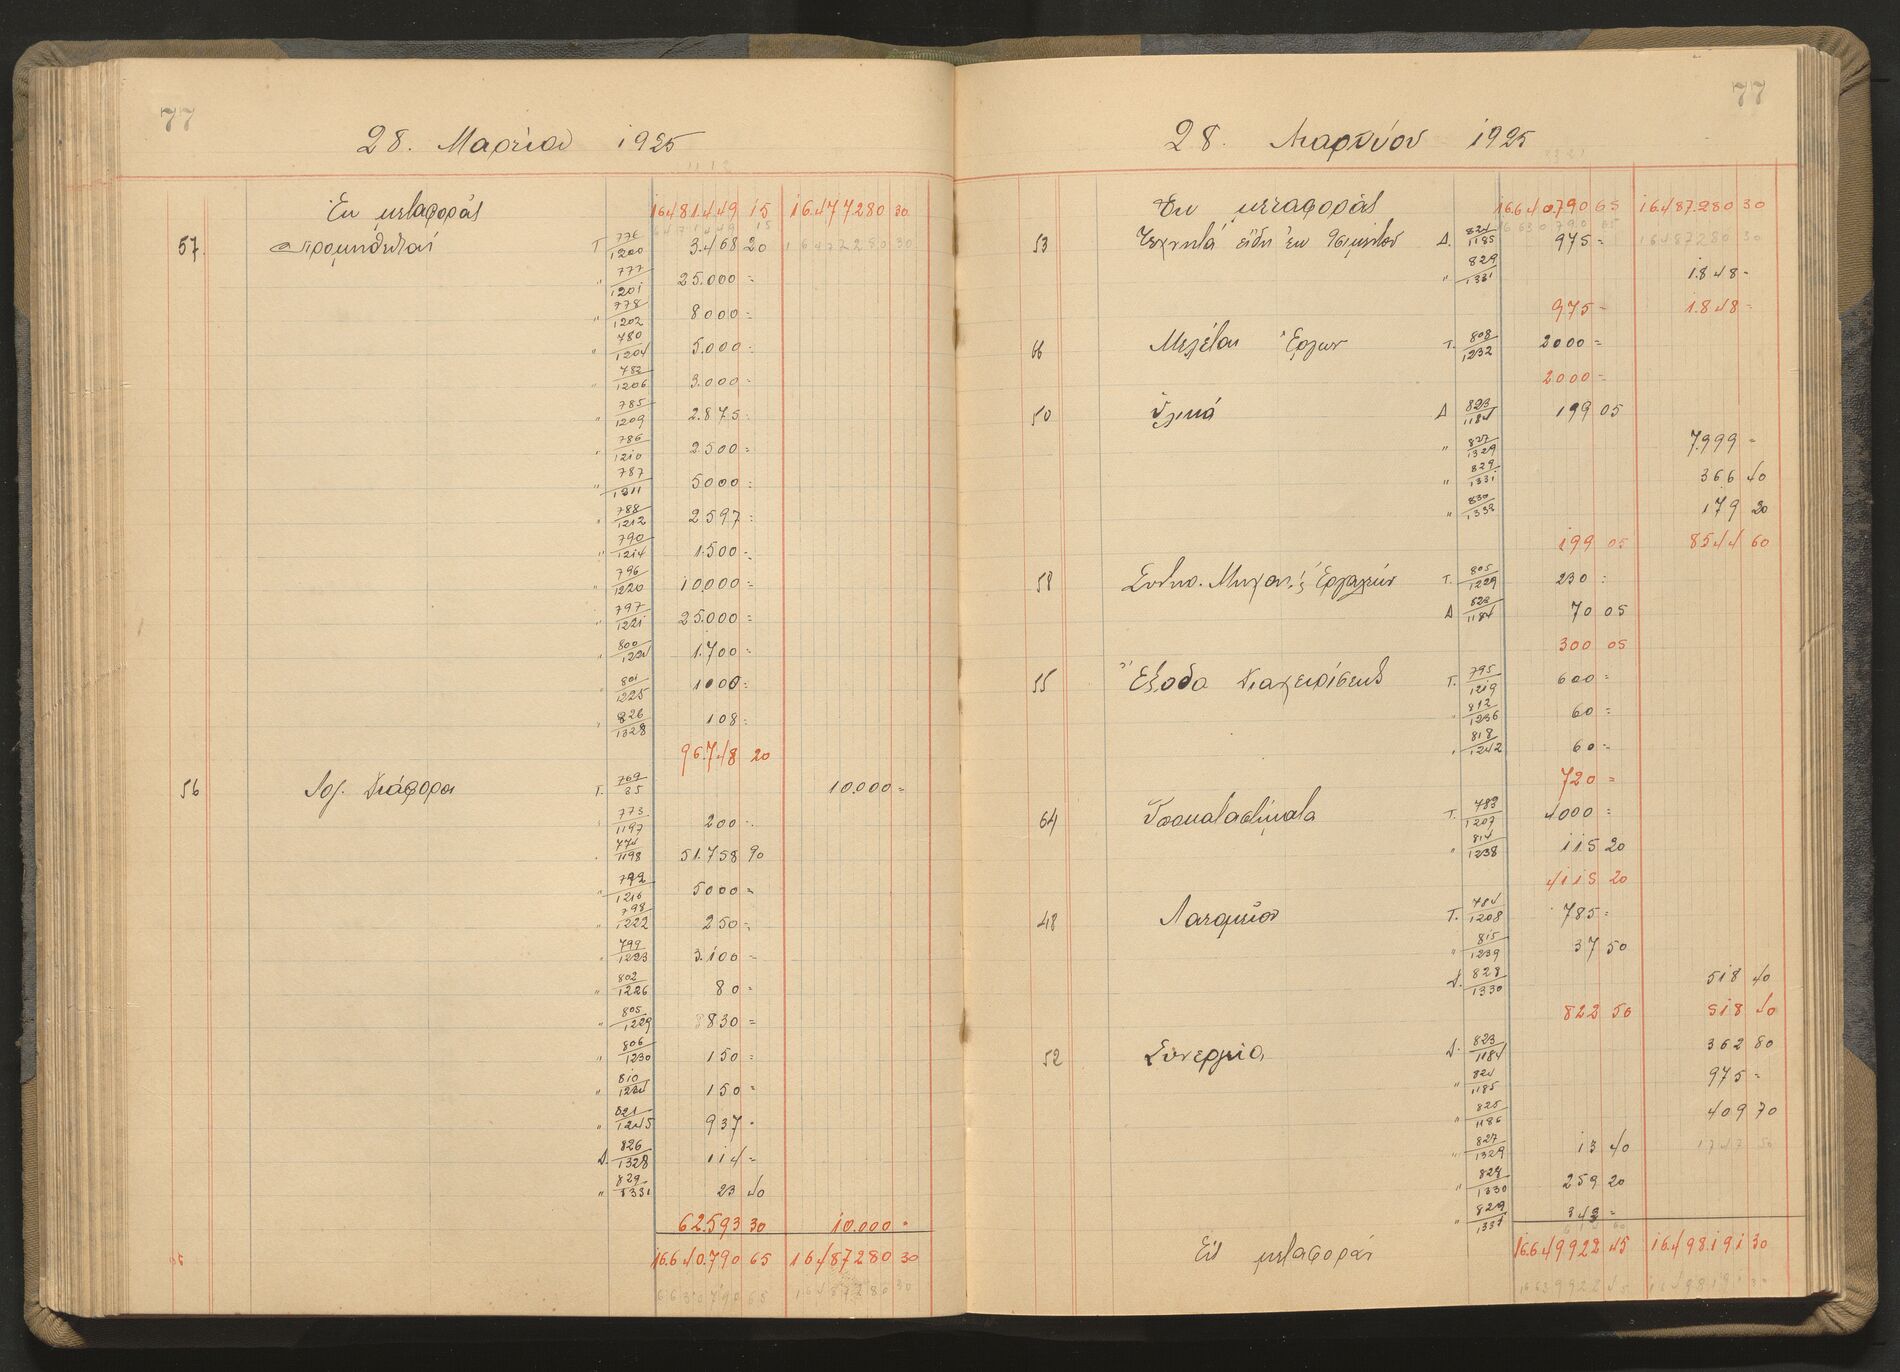 77
28. Μαρτίου 1925
Ἐκ μεταφορᾶς 16.481.449 15 16.477280 30
57. Προμηθευταί Τ 776/1200 3.468 20
" 777/1201 25.000 =
" 778/1202 8000 =
" 780/1204 5.000 =
" 782/1206 3.000 =
" 785/1209 2.875 =
" 786/1210 2500 =
" 787/1211 5000 =
" 788/1212 2597 =
" 790/1214 1.500 =
" 796/1220 10.000 =
" 797/1221 25.000 =
" 800/1224 1.700 =
" 801/1225 1000 =
" 826/1328 108 =
96.748 20
56 Λογ. Διάφοροι Τ. 769/35 10.000 =
773/1197 200 =
774/1198 51.758 90
" 792/1216 5000 =
" 798/1222 250 =
" 799/1223 3.100 =
" 802/1226 80 =
" 805/1229 830 =
" 806/1230 150 =
" 810/1234 150 =
" 821/1245 937 =
Δ. 826/1328 114 =
" 829/1331 23 40
62.593 30 10.000 =
16.640.790 65 16.487280 30
77
28. Μαρτίου 1925
Ἐκ μεταφορᾶς 16.640.790 65 16.487.280 30
53 Τεχνητά εἴδη ἐκ τσιμέντου Δ. 824/1185 975 =
" 829/1331 1.848 =
975 = 1.848 =
66 Μελέται Ἔργων Τ. 808/1232 2000 =
2000 =
50 Ὑλικά Δ 823/1184 199 05
" 827/1329 7.999 =
" 829/1331 366 40
" 830/1332 179 20
199 05 8544 60
58 Συντηρ. Μηχαν. & Ἐργαλείων Τ. 805/1229 230 =
Δ 823/1184 70 05
300 05
55 Ἔξοδα Διαχειρίσεως Τ. 795/1219 600 =
" 812/1236 60 =
" 818/1242 60 =
720 =
64 Ὑποκαταστήματα Τ. 783/1207 4000 =
" 814/1238 115 20
4115 20
48 Λατομεῖον Τ. 784/1208 785 =
" 815/1239 37 50
Δ. 828/1330 518 40
822 50 518 40
52 Συνεργεῖα Δ. 823/1184 362 80
" 824/1185 975 =
" 825/1186 409 70
" 827/1329 13 40
" 828/1330 259 20
" 829/1331 343 =
Εἰς μεταφοράν 16.649922 45 16.498.191 30